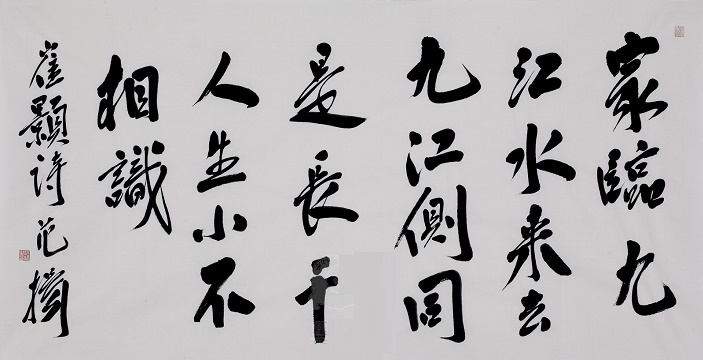 家臨九
江水来去
九江側同
是長干
人生小不
相識
崔顥詩 范